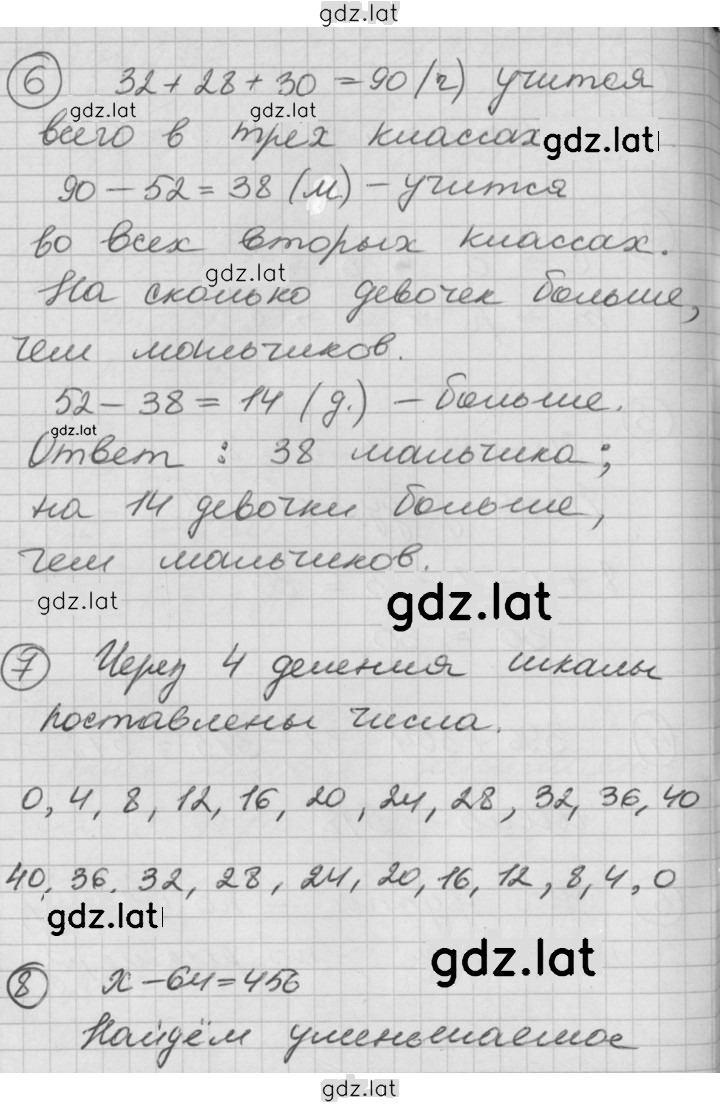 gdz.lat
6 32 + 28 + 30 = 90 (ч) учится
gdz.lat gdz.lat
всего в трёх классах gdz.lat
90 - 52 = 38 (м) - учится
во всех вторых классах.
gdz.lat
На сколько девочек больше,
чем мальчиков.
52 - 38 = 14 (д.) - больше.
gdz.lat
Ответ : 38 мальчика;
на 14 девочки больше,
чем мальчиков.
gdz.lat gdz.lat
7 Через 4 деления шкалы
поставлены числа.
0, 4, 8, 12, 16, 20, 24, 28, 32, 36, 40
40, 36, 32, 28, 24, 20, 16, 12, 8, 4, 0
gdz.lat
gdz.lat
8 х - 64 = 456
Найдём уменьшаемое
gdz.lat